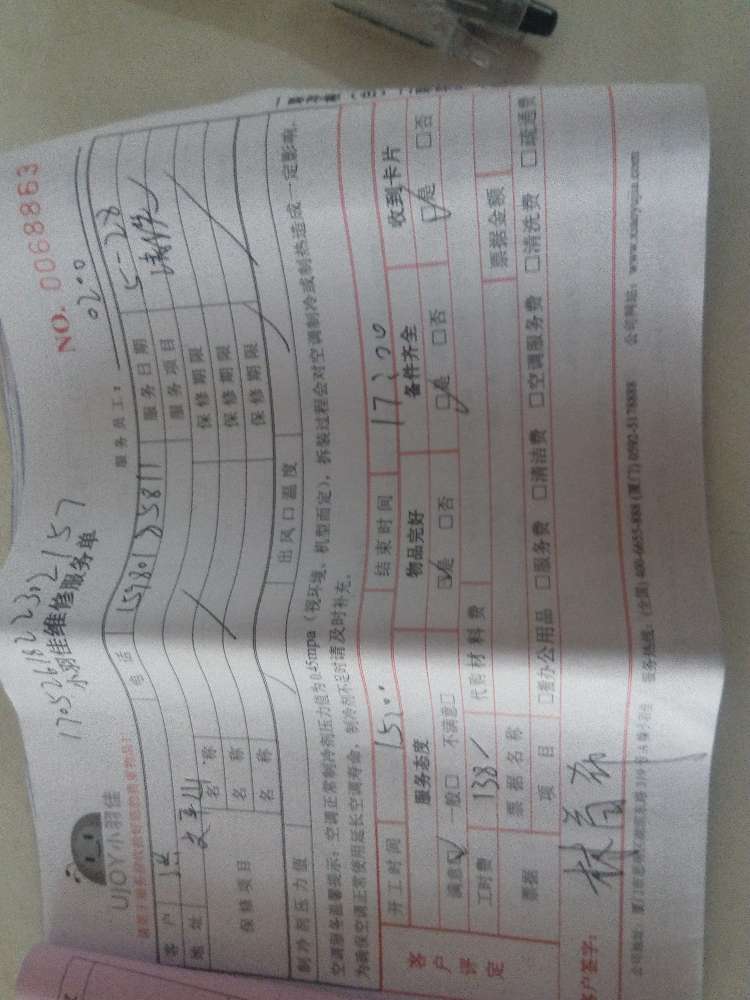 17052618223302157
NO. 0068863
UJOY小羽佳
小羽佳维修服务单
服务员工： 0200
客户 电话 15980125811 服务日期 5-28
地址 服务项目
保修项目 名称 保修期限
名称 保修期限
名称 保修期限
制冷剂压力值 出风口温度
空调服务温馨提示：空调正常制冷剂压力值为0.45mpa（视环境、机型而定），拆装过程会对空调制冷或制热造成一定影响，
为确保空调正常使用延长空调寿命，制冷剂不足时请及时补充。
开工时间 15:00 结束时间 17:00
客户评定 服务态度 物品完好 备件齐全 收到卡片
满意☑ 一般□ 不满意□ ☑是 □否 ☑是 □否 ☑是 □否
工时费 138 代购材料费
票据 票据名称 票据金额
项目 □办公用品 □服务费 □清洁费 □空调服务费 □清洗费 □疏通费
客户签字：
公司地址： 服务热线：(全国) 400-6655-888 (厦门) 0592-5178888 公司网站：www.xiaoyujia.com